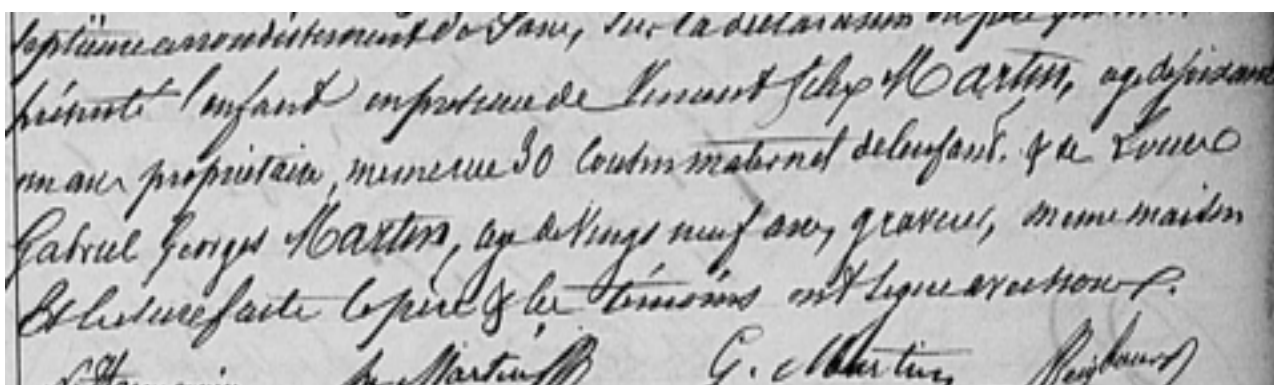 septième arrondissement de Paris, sur la déclaration du père qui
présenté l'enfant en présence de Vincent Félix Martin, agé de soixante
ans propriétaire, même rue 30 Cousin maternel de l'enfant. & de Louis
Gabriel Georges Martin, agé de vingt neuf ans, graveur, même maison
Et lecture faite le père & les témoins ont signé avec nous.
Martin G. Martin